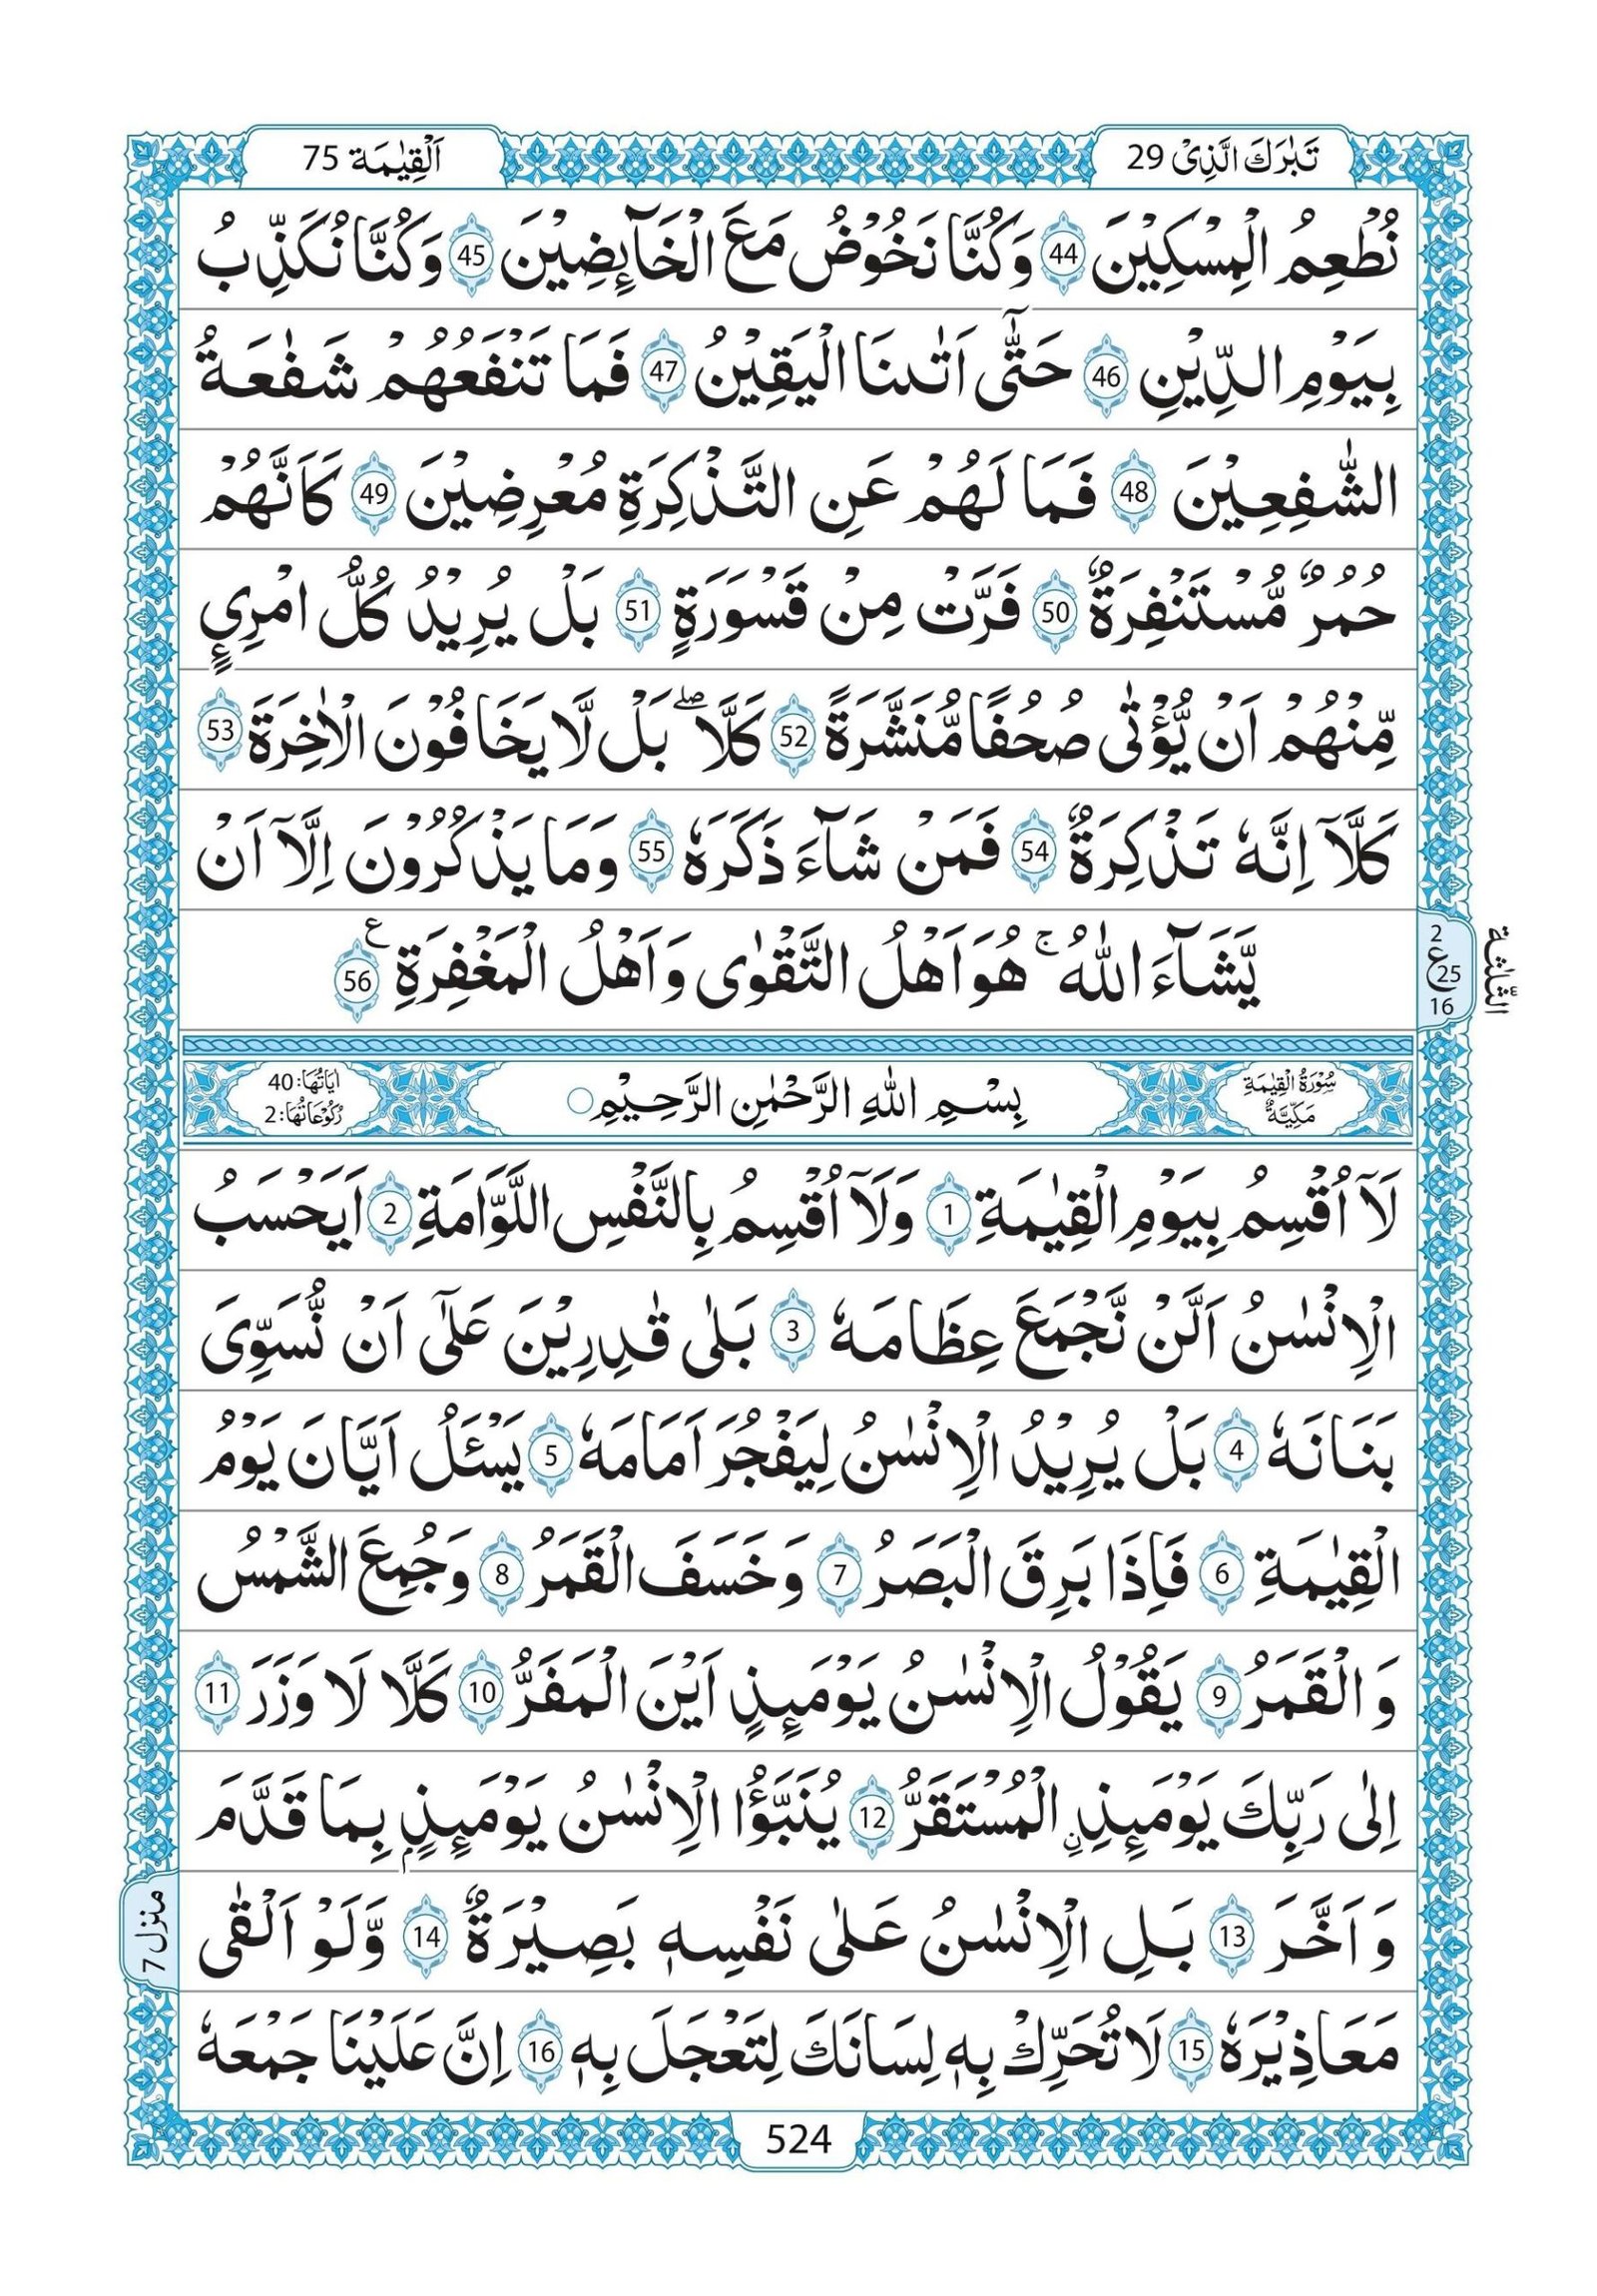 تَبٰرَكَ الَّذِیْ 29
اَلْقِیٰمَة 75
نُطْعِمُ الْمِسْكِیْنَ 44 وَكُنَّا نَخُوْضُ مَعَ الْخَآىِٕضِیْنَ 45 وَكُنَّا نُكَذِّبُ
بِیَوْمِ الدِّیْنِ 46 حَتّٰۤی اَتٰىنَا الْیَقِیْنُ 47 فَمَا تَنْفَعُهُمْ شَفٰعَةُ
الشّٰفِعِیْنَ 48 فَمَا لَهُمْ عَنِ التَّذْكِرَةِ مُعْرِضِیْنَ 49 كَاَنَّهُمْ
حُمُرٌ مُّسْتَنْفِرَةٌ 50 فَرَّتْ مِنْ قَسْوَرَةٍ 51 بَلْ یُرِیْدُ كُلُّ امْرِیٍٔ
مِّنْهُمْ اَنْ یُّؤْتٰی صُحُفًا مُّنَشَّرَةً 52 كَلَّا ۖ بَلْ لَّا یَخَافُوْنَ الْاٰخِرَةَ 53
كَلَّاۤ اِنَّهٗ تَذْكِرَةٌ 54 فَمَنْ شَآءَ ذَكَرَهٗ 55 وَمَا یَذْكُرُوْنَ اِلَّاۤ اَنْ
یَّشَآءَ اللّٰهُ ۚ هُوَ اَهْلُ التَّقْوٰی وَاَهْلُ الْمَغْفِرَةِ 56 ع
2
ع 25
16
الثلٰثة
سُوْرَةُ الْقِیٰمَةِ
مَكِّیَّةٌ
بِسْمِ اللّٰهِ الرَّحْمٰنِ الرَّحِیْمِ ○
اٰیَاتُهَا: 40
رُكُوْعَاتُهَا: 2
لَاۤ اُقْسِمُ بِیَوْمِ الْقِیٰمَةِ 1 وَلَاۤ اُقْسِمُ بِالنَّفْسِ اللَّوَّامَةِ 2 اَیَحْسَبُ
الْاِنْسٰنُ اَلَّنْ نَّجْمَعَ عِظَامَهٗ 3 بَلٰی قٰدِرِیْنَ عَلٰۤی اَنْ نُّسَوِّیَ
بَنَانَهٗ 4 بَلْ یُرِیْدُ الْاِنْسٰنُ لِیَفْجُرَ اَمَامَهٗ 5 یَسْـَٔلُ اَیَّانَ یَوْمُ
الْقِیٰمَةِ 6 فَاِذَا بَرِقَ الْبَصَرُ 7 وَخَسَفَ الْقَمَرُ 8 وَجُمِعَ الشَّمْسُ
وَالْقَمَرُ 9 یَقُوْلُ الْاِنْسٰنُ یَوْمَىِٕذٍ اَیْنَ الْمَفَرُّ 10 كَلَّا لَا وَزَرَ 11
اِلٰی رَبِّكَ یَوْمَىِٕذِ ِ۟الْمُسْتَقَرُّ 12 یُنَبَّؤُا الْاِنْسٰنُ یَوْمَىِٕذٍۭ بِمَا قَدَّمَ
وَاَخَّرَ 13 بَلِ الْاِنْسٰنُ عَلٰی نَفْسِهٖ بَصِیْرَةٌ 14 وَّلَوْ اَلْقٰی
مَعَاذِیْرَهٗ 15 لَا تُحَرِّكْ بِهٖ لِسَانَكَ لِتَعْجَلَ بِهٖ 16 اِنَّ عَلَیْنَا جَمْعَهٗ
منزل 7
524